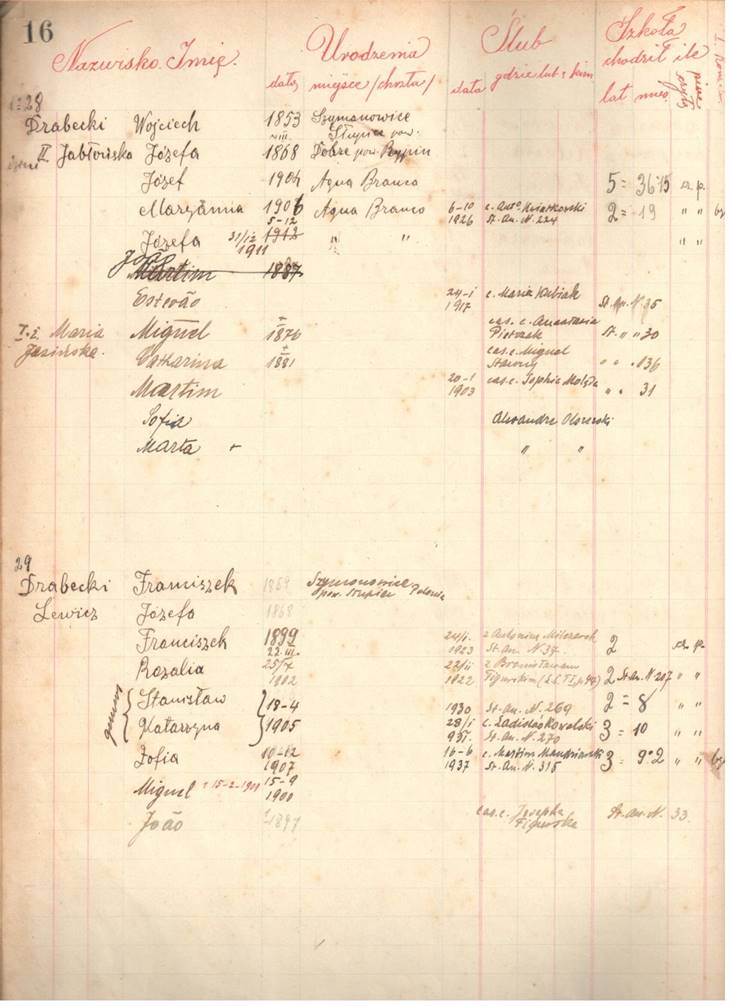 16
Nazwisko Imię.
Urodzenia
data, miejsce /chrztu/
Ślub
data gdzie lub z kim
Szkoła
chodził ile
lat mies.
28
Drabecki Wojciech 1853 Szymanowice
Słupice pow.
II Jabłońska Józefa 1868 Dobre pow. Rypin
Józef 1904 Agua Branca 5 = 36
Maryanna 1906 Agua Branco 6-10 c. Antº Kwiatkowski 2 = 19 " "
5-12 1926 St. An. N. 224
Józefa 31/12 1912 " " " "
1911
João
Martim 1887
Estevão 24-1 c. Maria Kubiak St. An. N. 35
1917
I. ż. Maria Miguel + 1876 cas. c. Anastazia
Jasińska. Pietrzak St. " " 30
Catharina + 1881 cas. c. Miguel
Starony " " . 136
Martim 20-1 cas. c. Sophia " . 31
1903
Sofia Alexandre Olszewski
Marta " "
29
Drabecki Franciszek 1869 Szymonowice
pow. Słupica Polonia
Lewicz Józefa 1868
Franciszek 1899 24/1. z Antoniną 2
22.III. 1923 St. An. N 37.
Rozalia 25/X 22/II z Bronisławem 2 St. An. N 207 " "
1902 1922 Figurskim
Stanisław 18-4 1930 St. An. N. 269 2 = 8 " "
Katarzyna 1905 28/1 c. Ladislao Kovalski 3 = 10 " "
937. St. An. N. 270
Zofia 10-12 16-6 c. Martim 3 = 9.2 " "
1907 1937 St. An. N. 315
Miguel + 15-2-1901 15-9
1900
João 1897 cas. c. Josepha St. An. N. 33
Figurska